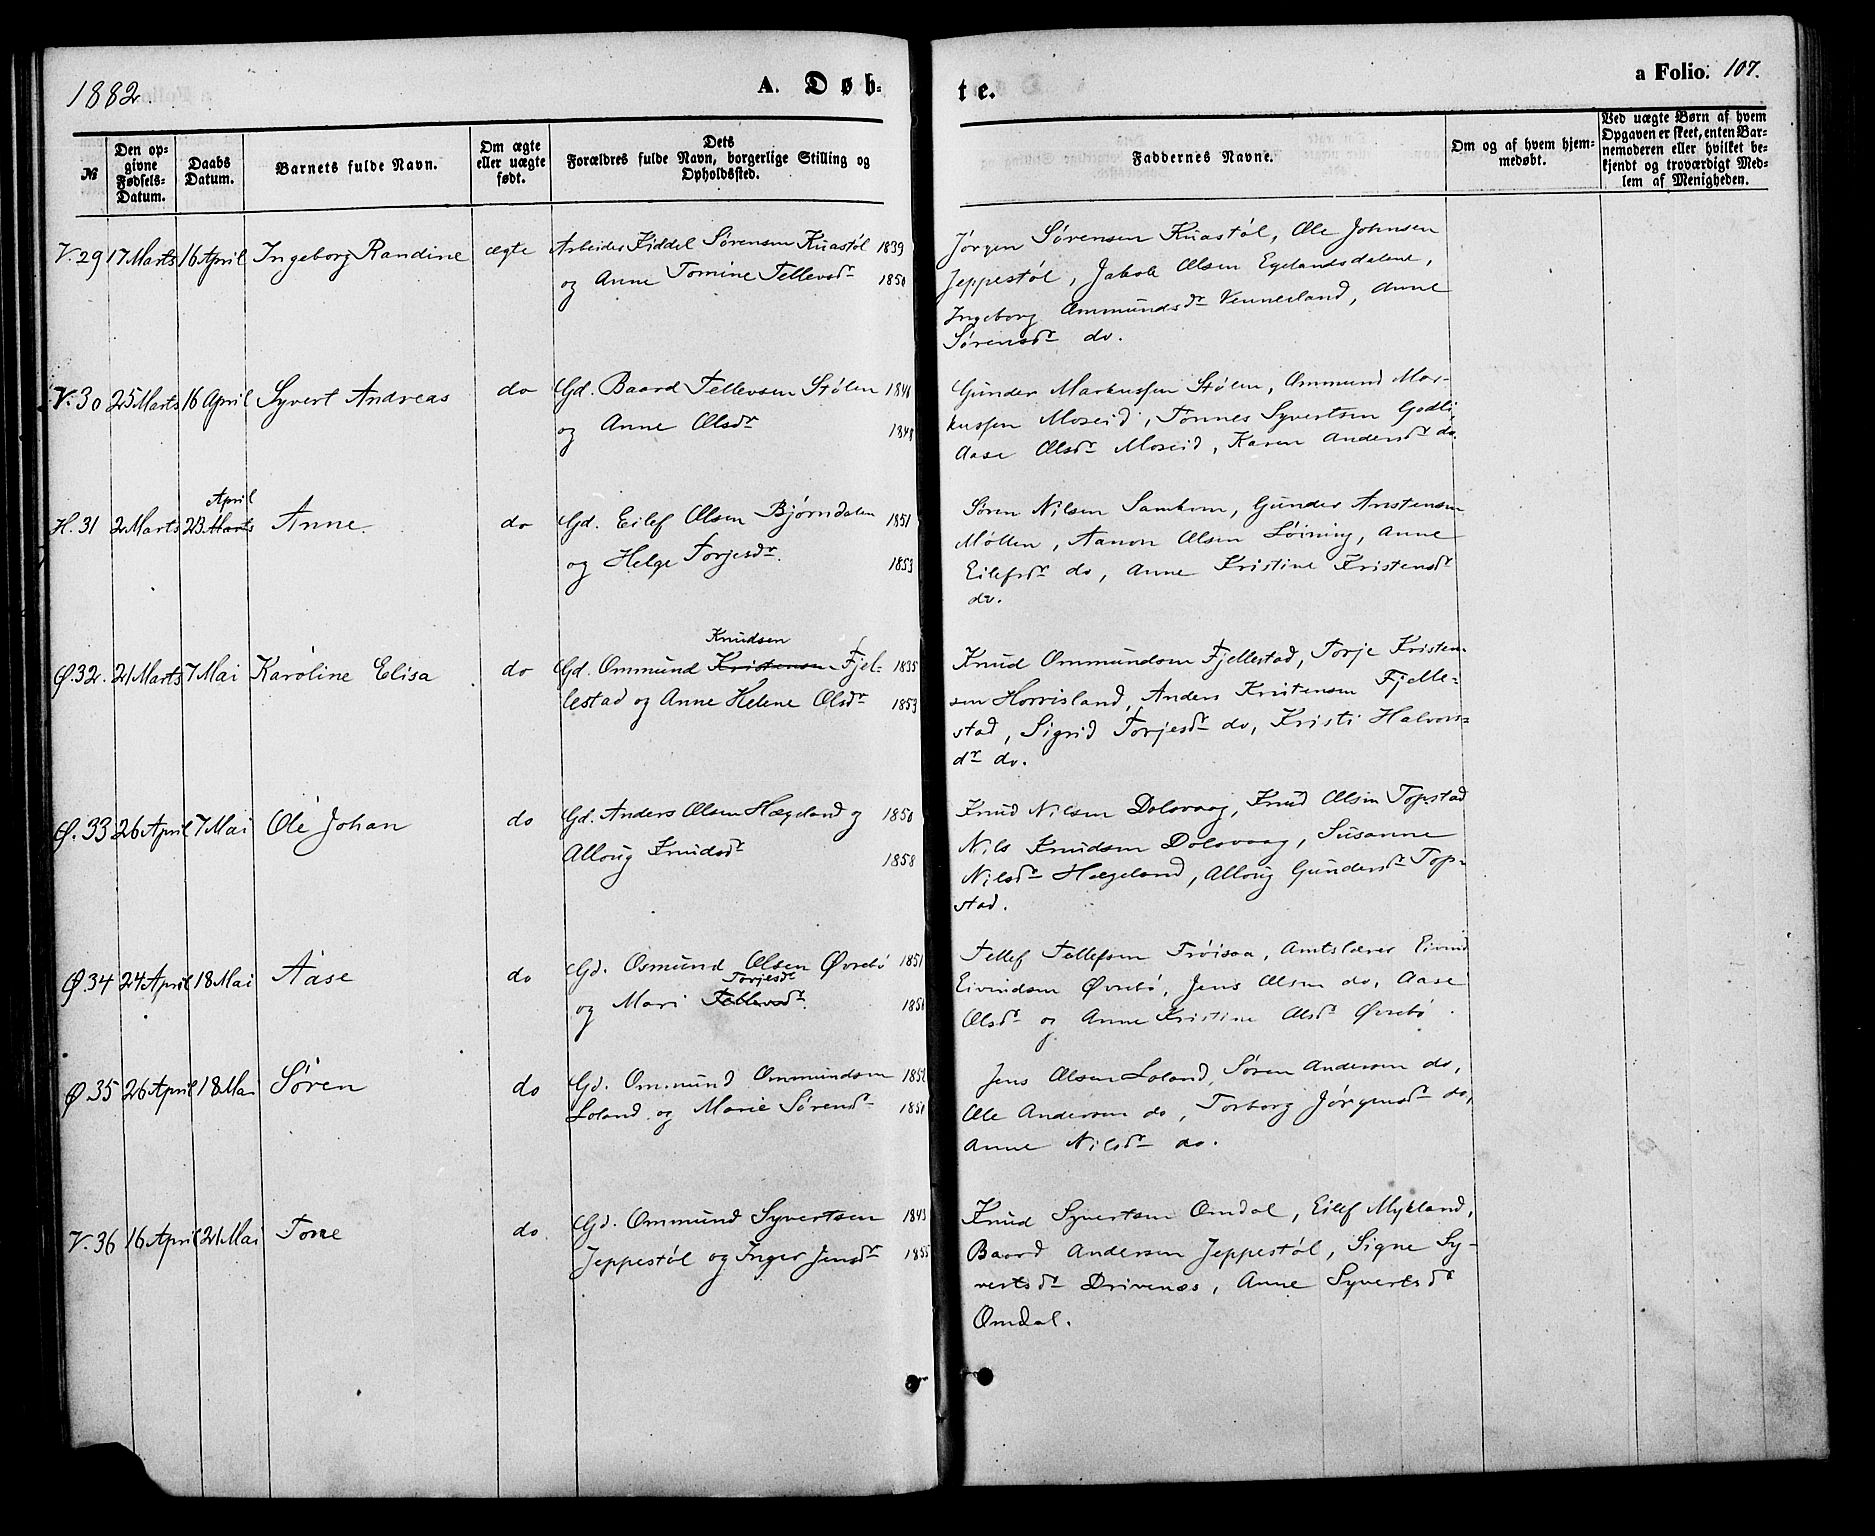 1882.
A. Døb-
te.
a Folio. 107.
№
Den op-
givne
Fødsels-
Datum.
Daabs
Datum.
Barnets fulde Navn.
Om ægte
eller uægte
født.
Dets
Forældres fulde Navn, borgerlige Stilling og
Opholdssted.
Faddernes Navne.
Om og af hvem hjem-
medøbt.
Ved uægte Børn af hvem
Opgaven er skeet, enten Bar-
nemoderen eller hvilket be-
kjendt og troværdigt Med-
lem af Menigheden.
V. 29 17 Marts 16 April Ingeborg Randine ægte Arbeider Fiddel Sørensen Kuastøl 1839
og Anne Tomine Tellevsdr 1850
Jørgen Sørensen Kuastøl, Ole Johnsen
Jeppestøl, Jakob Olsen Egelandsdalene,
Ingeborg Ommundsdr Vennesland, Anne
Sørensdr do.
V. 30 25 Marts 16 April Syvert Andreas do Gd. Baard Tellevsen Stølen
og Anne Olsdr 1848
Gunder Markussen Stølen, Ommund Mar-
kussen Moseid, Tønnes Syvertsen Godli
Aase Olsdr Moseid, Karen Andersdr do.
April
H. 31 2 Marts 23 Marts Anne do Gd. Eilef Olsen Bjørndalen 1851
og Helge Torjesdr. 1853
Søren Nilsen Samkom, Gunder Anstensen
Møllen, Aanon Olsen Løining, Anne
Eilefsdr do, Anne Kristine Kristensdr
do.
Knudsen
Ø. 32. 21 Marts 7 Mai Karoline Elisa do Gd. Ommund Kristensen Fjel- 1835
lestad og Anne Helene Olsdr 1853
Knud Ommundsen Fjellestad, Torje Kristen-
sen Horrisland, Anders Kristensen Fjelle-
stad, Sigrid Torjesdr do, Kristi Halvors-
dr do.
Ø. 33 26 April 7 Mai Ole Johan do Gd. Anders Olsen Hægeland og 1850
Alloug Knudsdr 1858
Knud Nilsen Dolovaag, Knud Olsen Topstad
Nils Knudsen Dolovaag, Susanne
Nilsdr Hægeland, Alloug Gundersdr Top-
stad.
Ø. 34 24 April 18 Mai Aase do Gd. Osmund Olsen Øvrebø 1851
Torjesdr
og Mari Tellevsdr. 1851
Tellef Tellefsen Trøisaa, Amtslærer Eivind
Eivindsen Øvrebø, Jens Olsen do, Aase
Olsdr og Anne Kristine Olsdr Øvrebø.
Ø. 35 26 April 18 Mai Søren do Gd. Ommund Ommundsen
Loland og Marie Sørensdr
Jens Olsen Loland, Søren Andersen do,
Ole Andersen do, Torborg Jørgensdr do,
Anne Nilsdr do.
V. 36 16 April 21 Mai Tone do. Gd. Ommund Syvertsen 1843
Jeppestøl og Inger Jensdr 1855
Knud Syvertsen Omdal, Eilef Mykland,
Baard Andersen Jeppestøl, Signe Sy-
vertsdr Drivenæs, Anne Syvertsdr
Omdal.